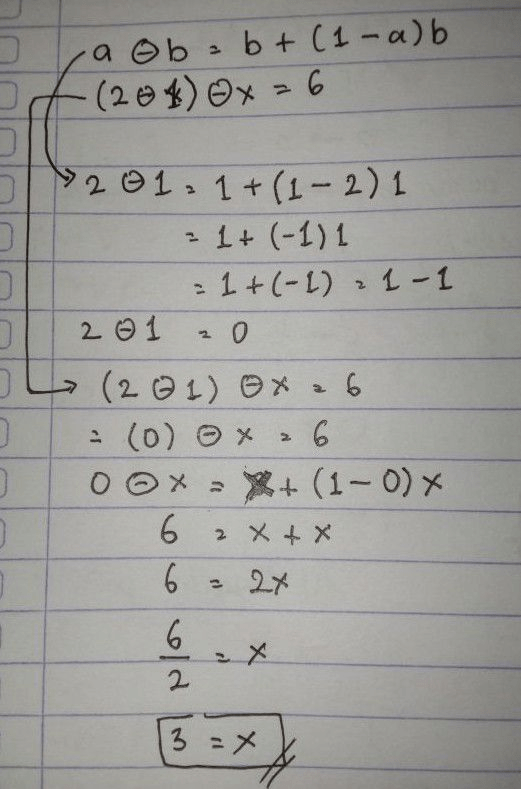 a ⊖ b = b + (1 - a) b
(2 ⊖ 1) ⊖ x = 6
2 ⊖ 1 = 1 + (1 - 2) 1
= 1 + (-1) 1
= 1 + (-1) = 1 - 1
2 ⊖ 1 = 0
(2 ⊖ 1) ⊖ x = 6
= (0) ⊖ x = 6
0 ⊖ x = x + (1 - 0) x
6 = x + x
6 = 2x
6/2 = x
3 = x